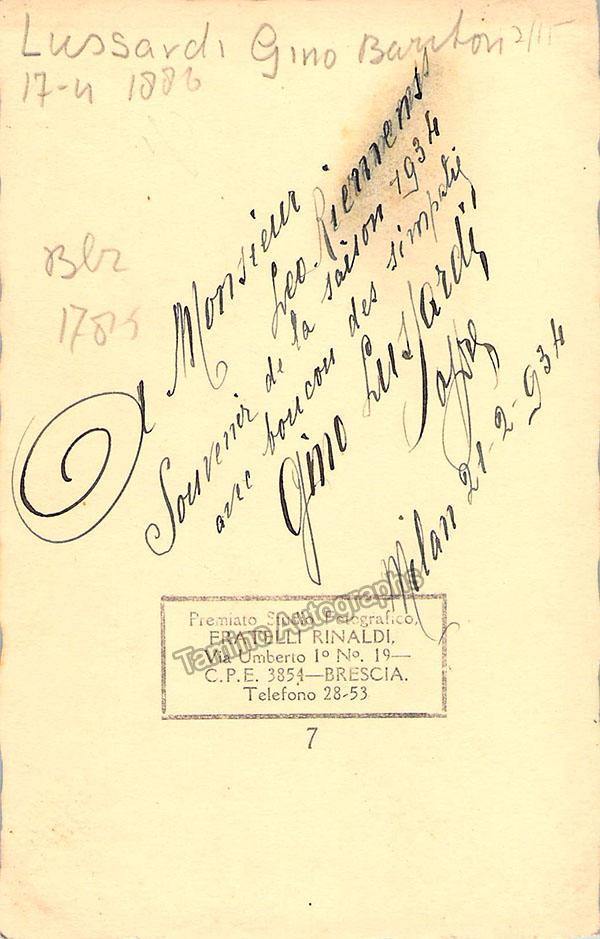 Lussardi Gino Bariton 2/15
17-4 1886
A Monsieur
Leo Riemens
Souvenir de la saison 1934
avec boucou des simpatie
Gino Lussardi
Milan 21-2-934
Blz
Premiato Studio Fotografico,
FRATELLI RINALDI,
Via Umberto 1º Nº. 19—
C.P.E. 3854—BRESCIA.
Telefono 28-53
7
Tamino Autographs